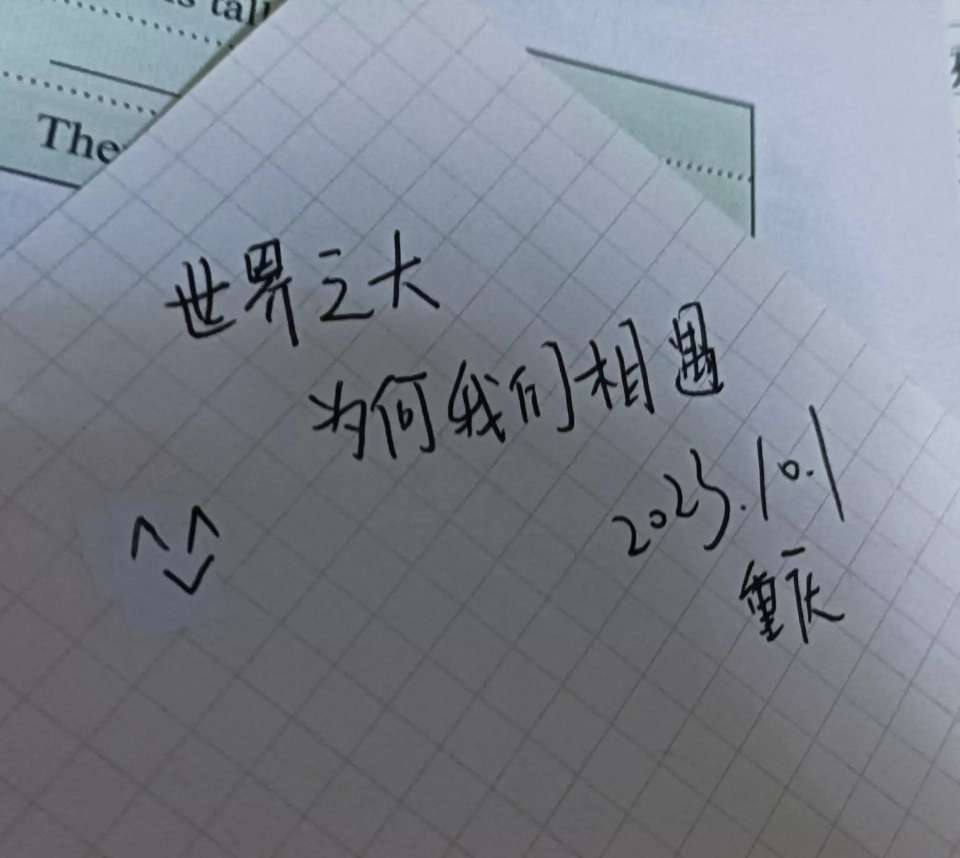 The
世界之大
为何我们相遇
2023.10.1
重庆